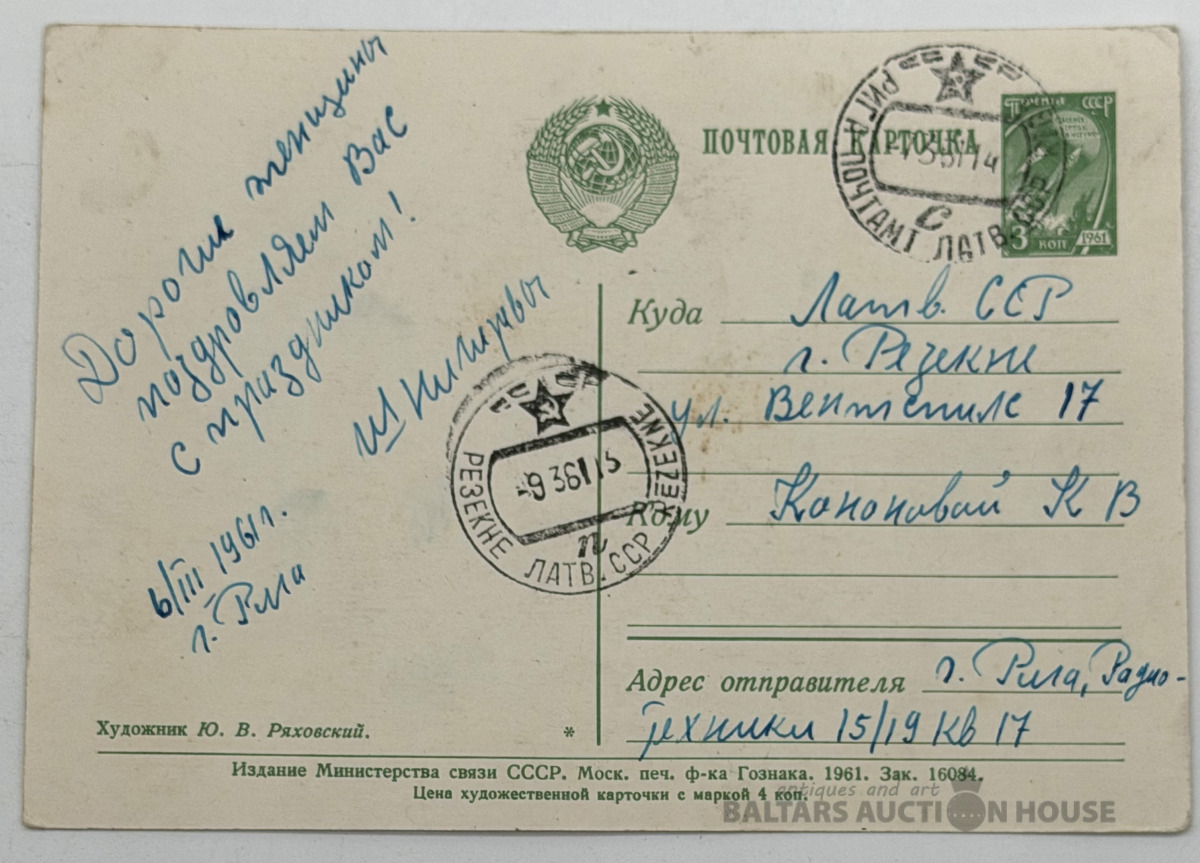 Дорогие женщины
поздровляем Вас
с праздником!
6/III 1961г.
г. Рига
Художник Ю. В. Ряховский.
*
ПОЧТОВАЯ КАРТОЧКА
ПОЧТА СССР
3 КОП 1961
РИГА ПОЧТАМТ ЛАТВ. ССР
с
РЕЗЕКНЕ ЛАТВ. ССР REZEKNE
-9 3 61 13
п
Куда Латв. ССР
г. Резекне
ул. Вентспилс 17
Кому Кононовой К В
Адрес отправителя г. Рига, Радио-
техники 15/19 кв 17
Издание Министерства связи СССР. Моск. печ. ф-ка Гознака. 1961. Зак. 16084.
Цена художественной карточки с маркой 4 коп.
antiques and art
BALTARS AUCTION HOUSE